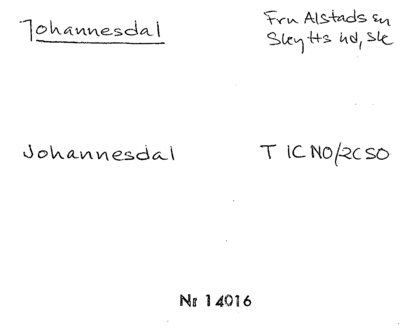 Johannesdal
Fru Alstads sn
Skytts hd, Sk
Johannesdal
T 1C NO/2C SO
Nr 14016